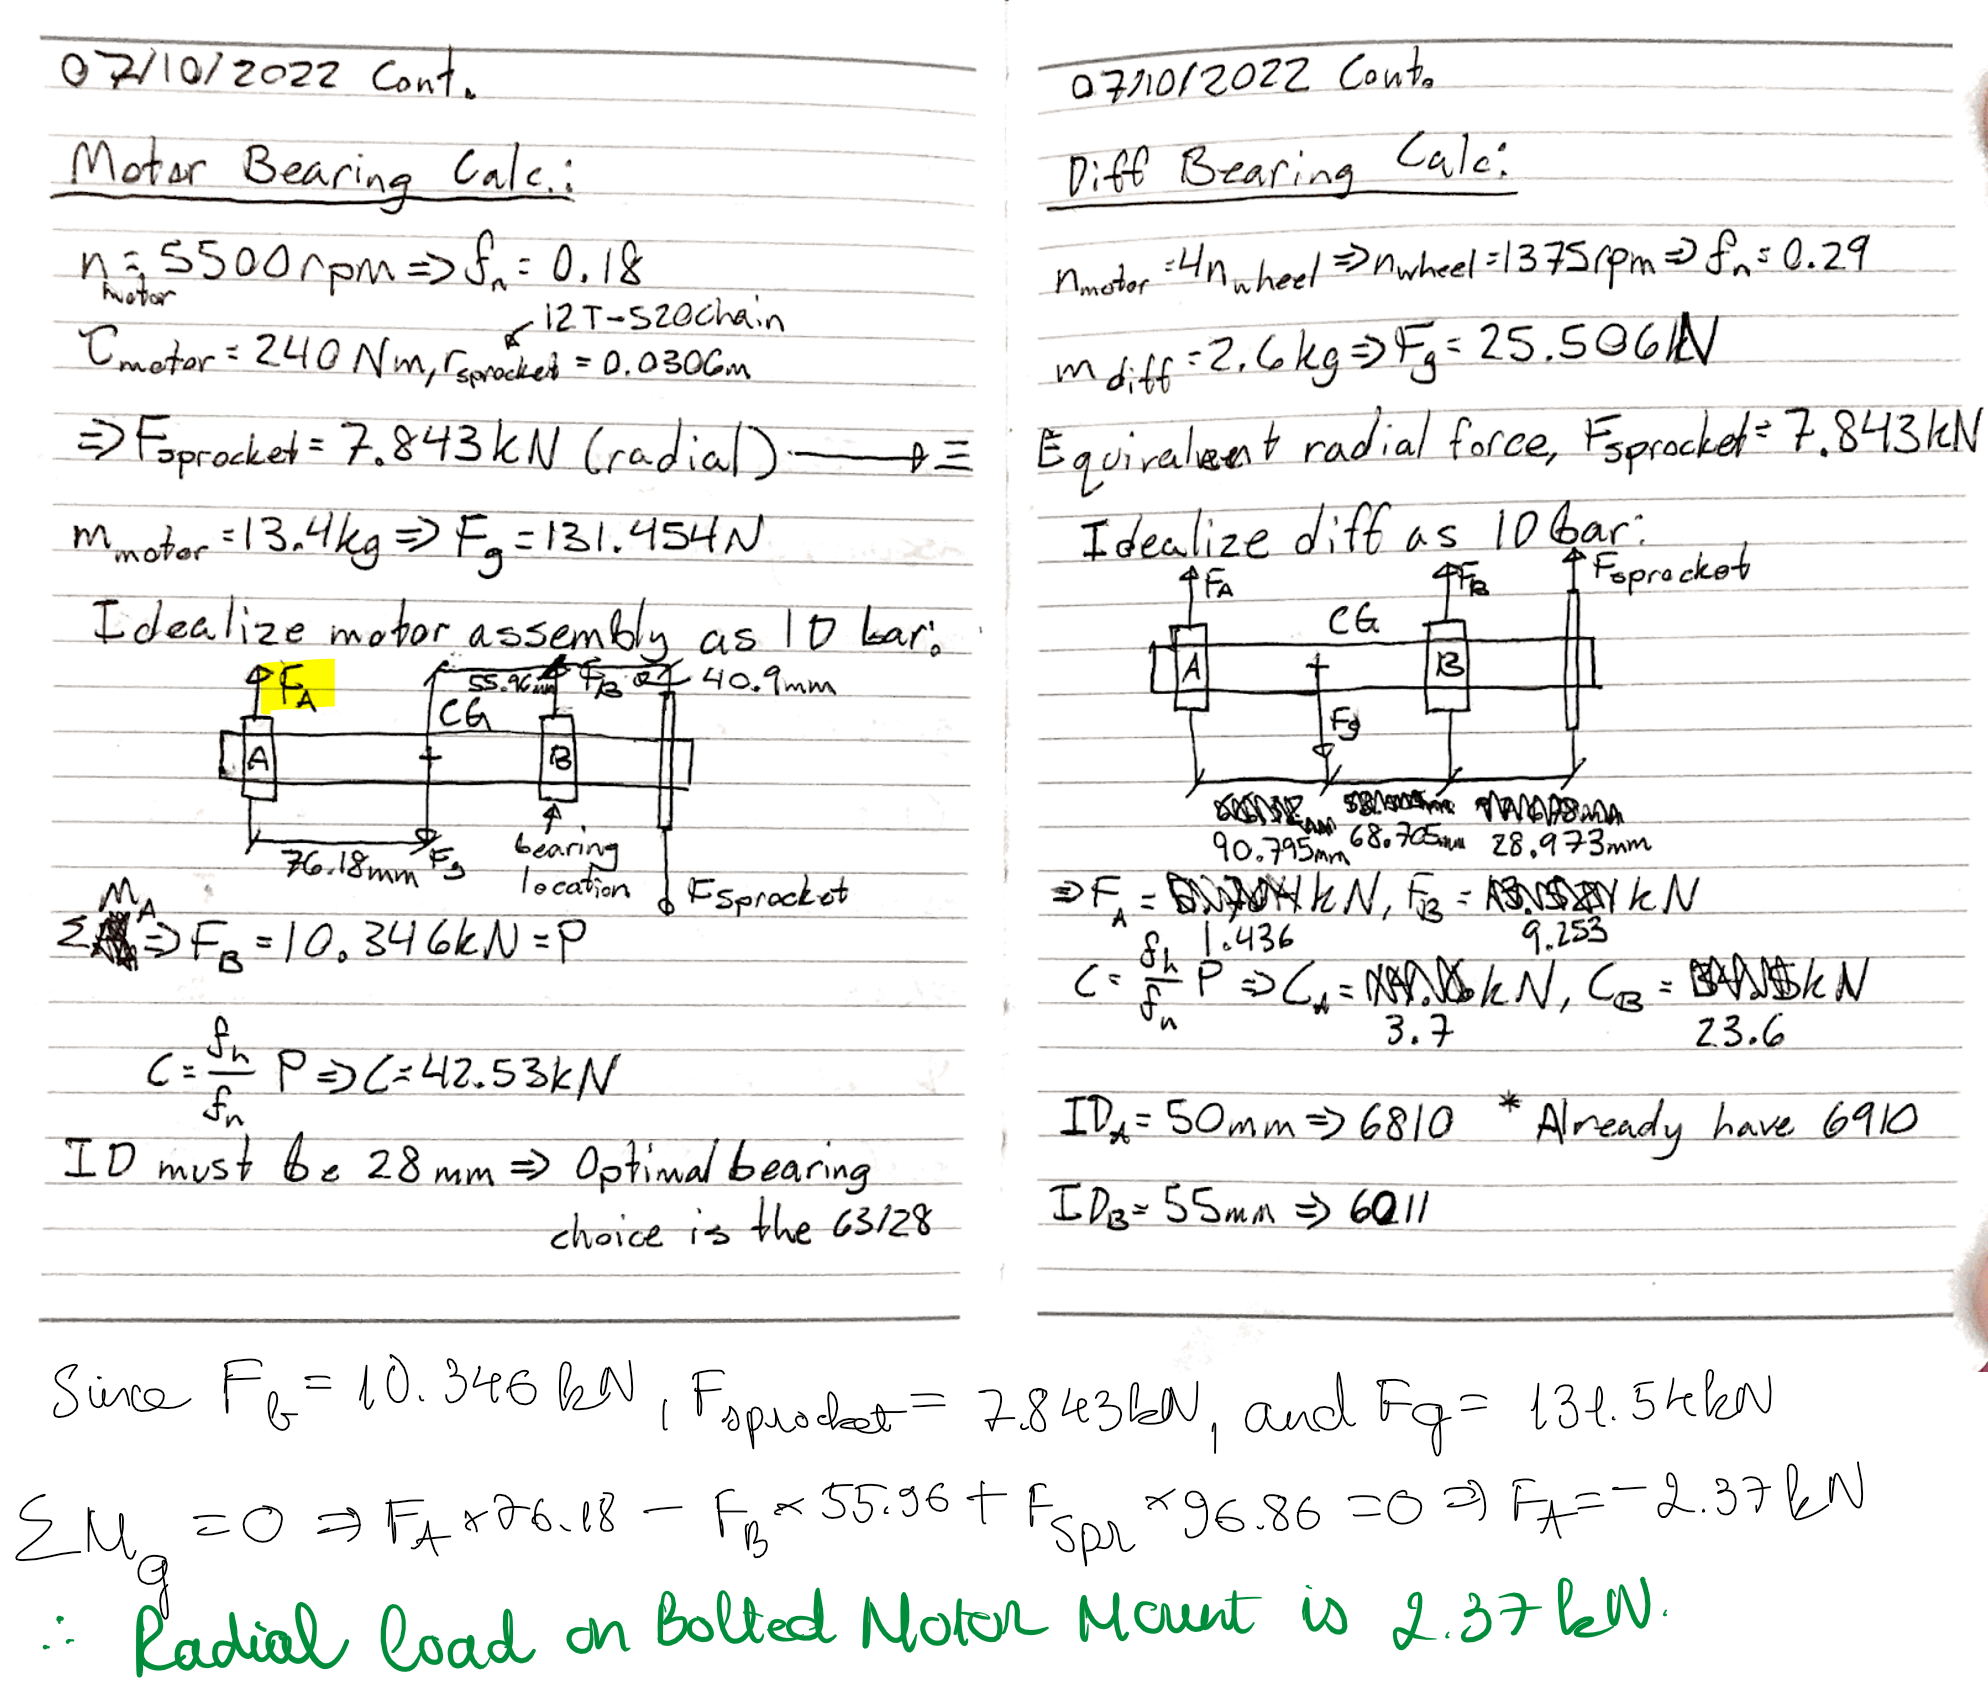 07/10/2022 Cont.
Motor Bearing Calc.:
n_motor = 5500rpm => f_n = 0.18
12T-520chain
τ_motor = 240 Nm, r_sprocket = 0.0306m
=> F_sprocket = 7.843kN (radial)
m_motor = 13.4kg => F_g = 131.454N
Idealize motor assembly as 1D bar:
F_A
55.96mm F_B
40.9mm
CG
A
B
76.18mm F_g
bearing
location
F_sprocket
ΣM_A => F_B = 10.346kN = P
C = f_h/f_n P => C = 42.53kN
ID must be 28mm => Optimal bearing
choice is the 63/28
07/10/2022 Cont.
Diff Bearing Calc:
n_motor = 4n_wheel => n_wheel = 1375rpm => f_n = 0.29
m_diff = 2.6kg => F_g = 25.506N
Equivalent radial force, F_sprocket = 7.843kN
Idealize diff as 1D bar:
F_A F_B F_sprocket
CG
A B
F_g
90.795mm 68.705mm 28.973mm
=> F_A = 1.436 kN, F_B = 9.253 kN
C = f_h/f_n P => C_A = 3.7 kN, C_B = 23.6 kN
ID_A = 50mm => 6810 * Already have 6910
ID_B = 55mm => 6011
Since F_b = 10.346 kN, F_sprocket = 7.843kN, and F_g = 131.54kN
ΣM_g = 0 => F_A × 76.18 - F_B × 55.96 + F_spr × 96.86 = 0 => F_A = -2.37kN
∴ Radial load on Bolted Motor Mount is 2.37kN.